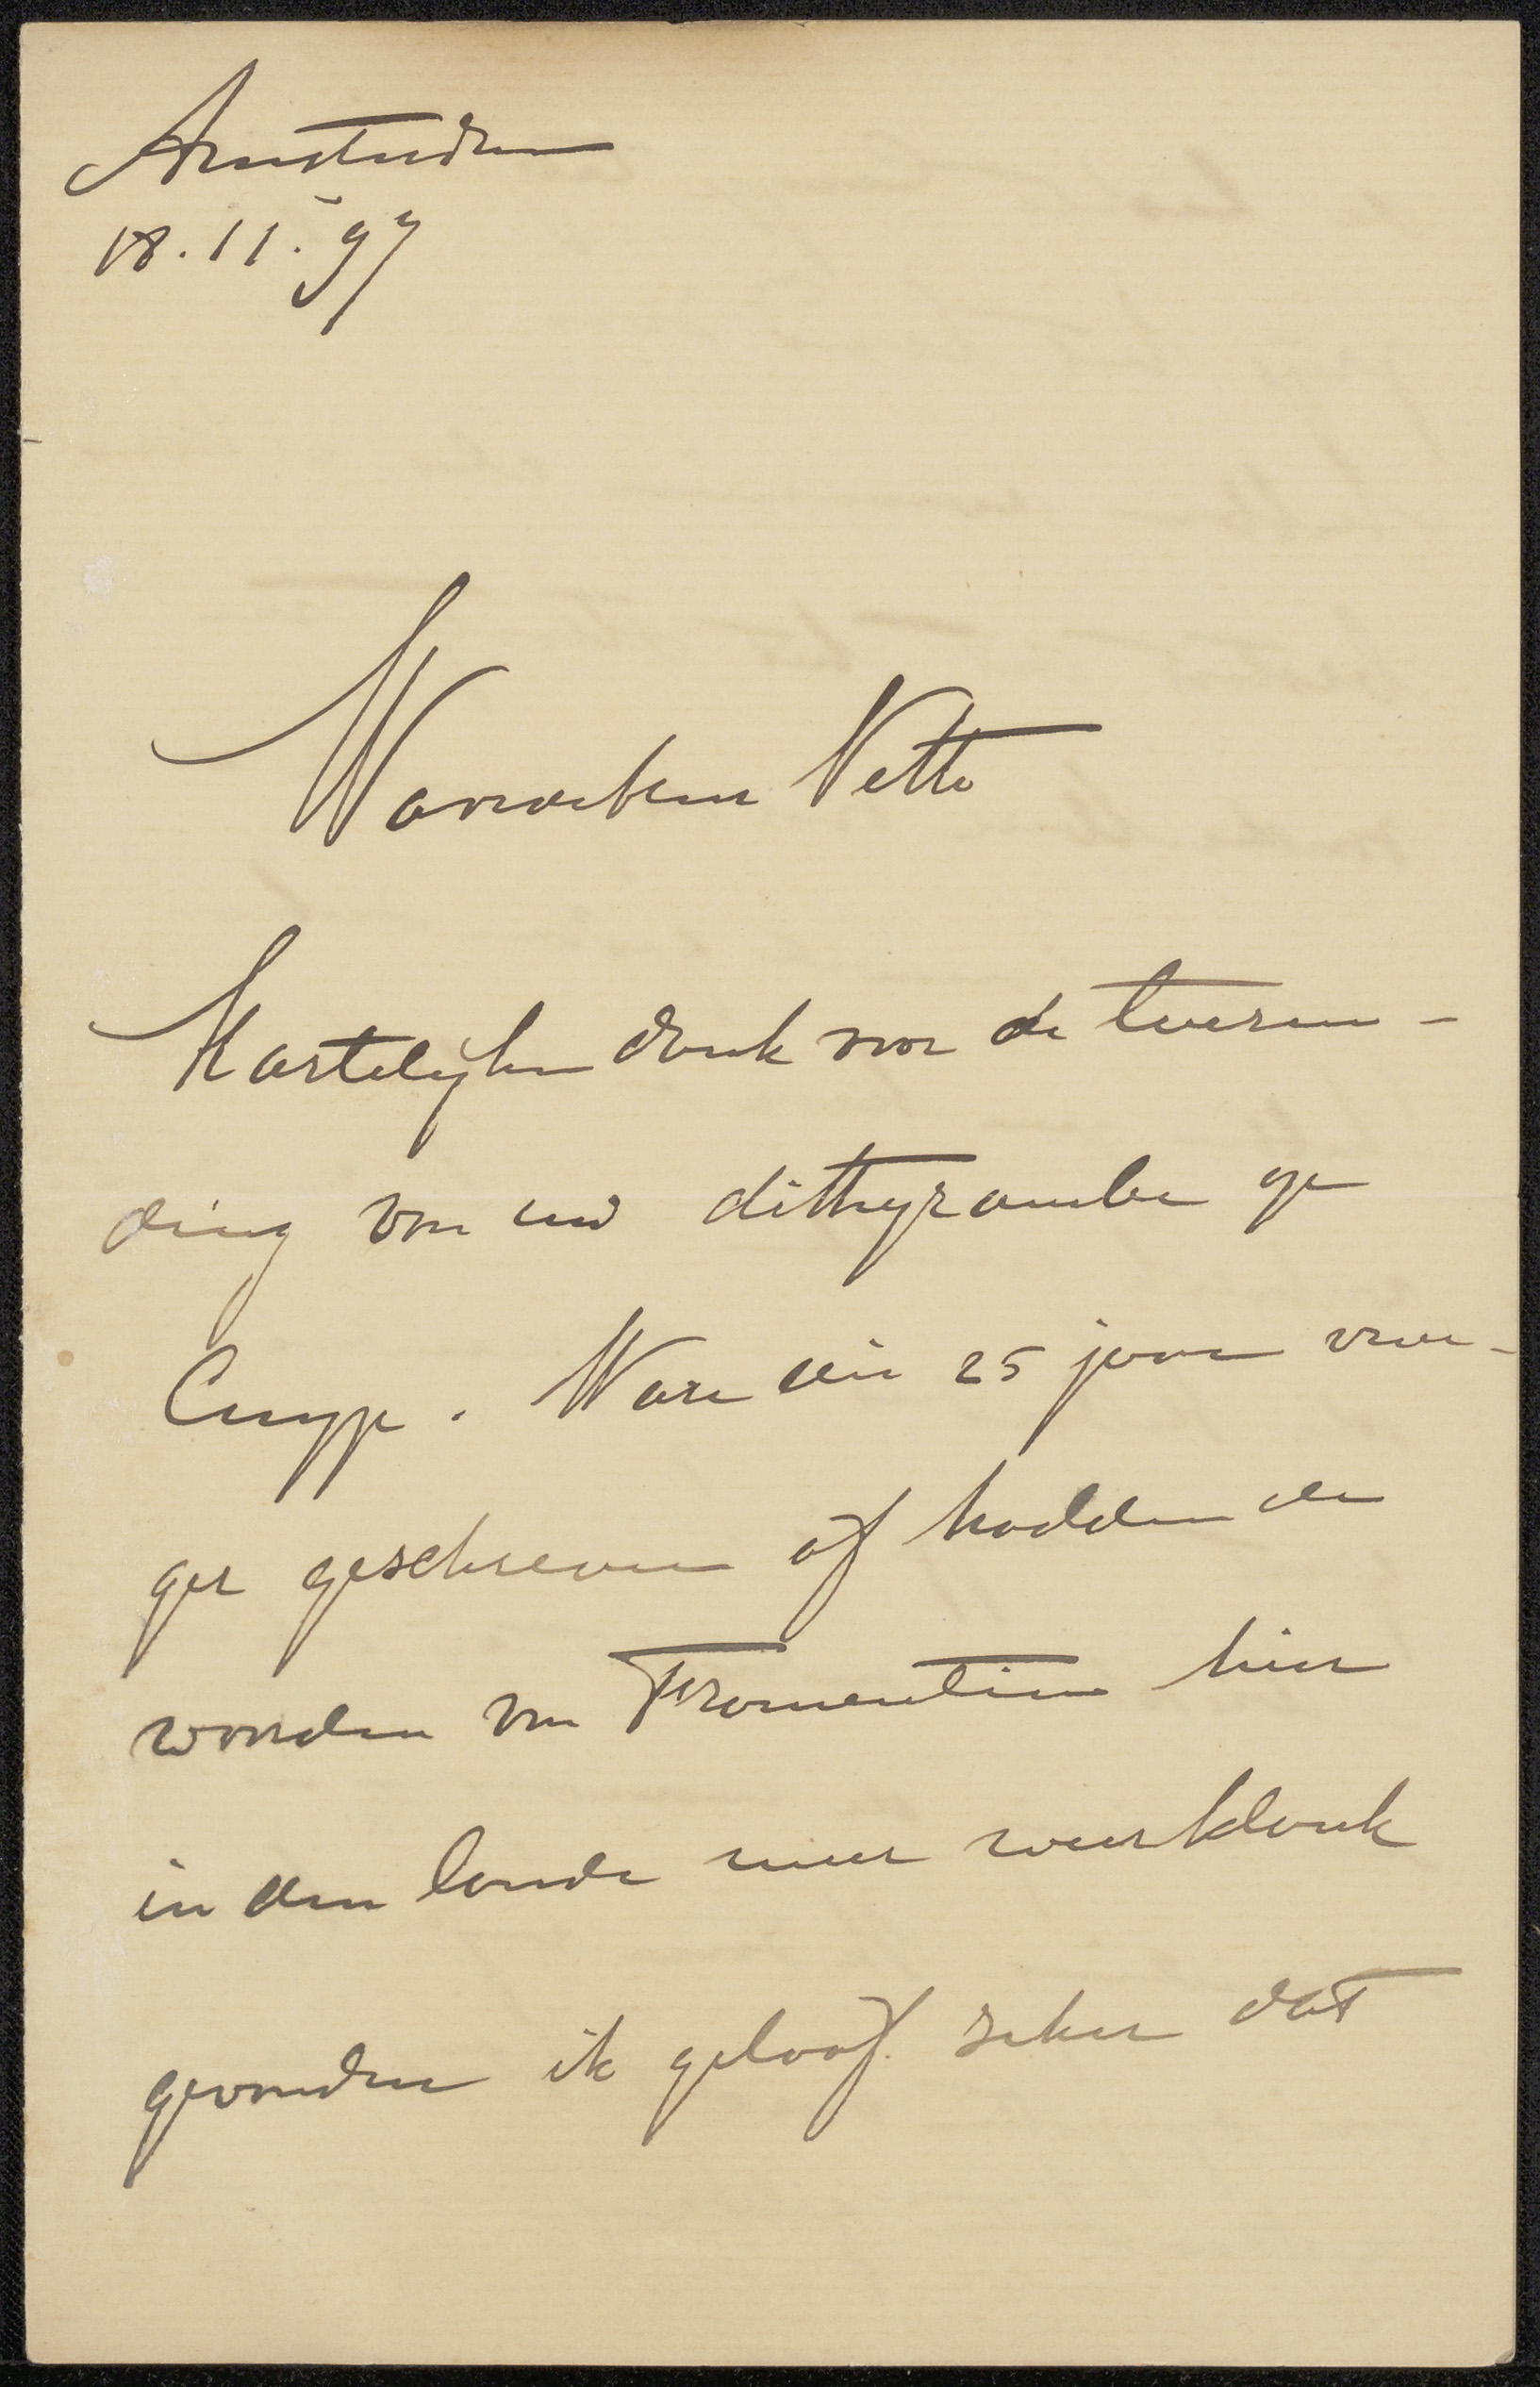 Amsterdam
18.11.97
Waarde heer Veth
Hartelijken dank voor de toezen-
ding van uw dithyrambe op
Cuyp. Ware die 25 jaar vroe-
ger geschreven of hadden de
woorden van Fromentin hier
in den lande meer weerklank
gevonden ik geloof zeker dat